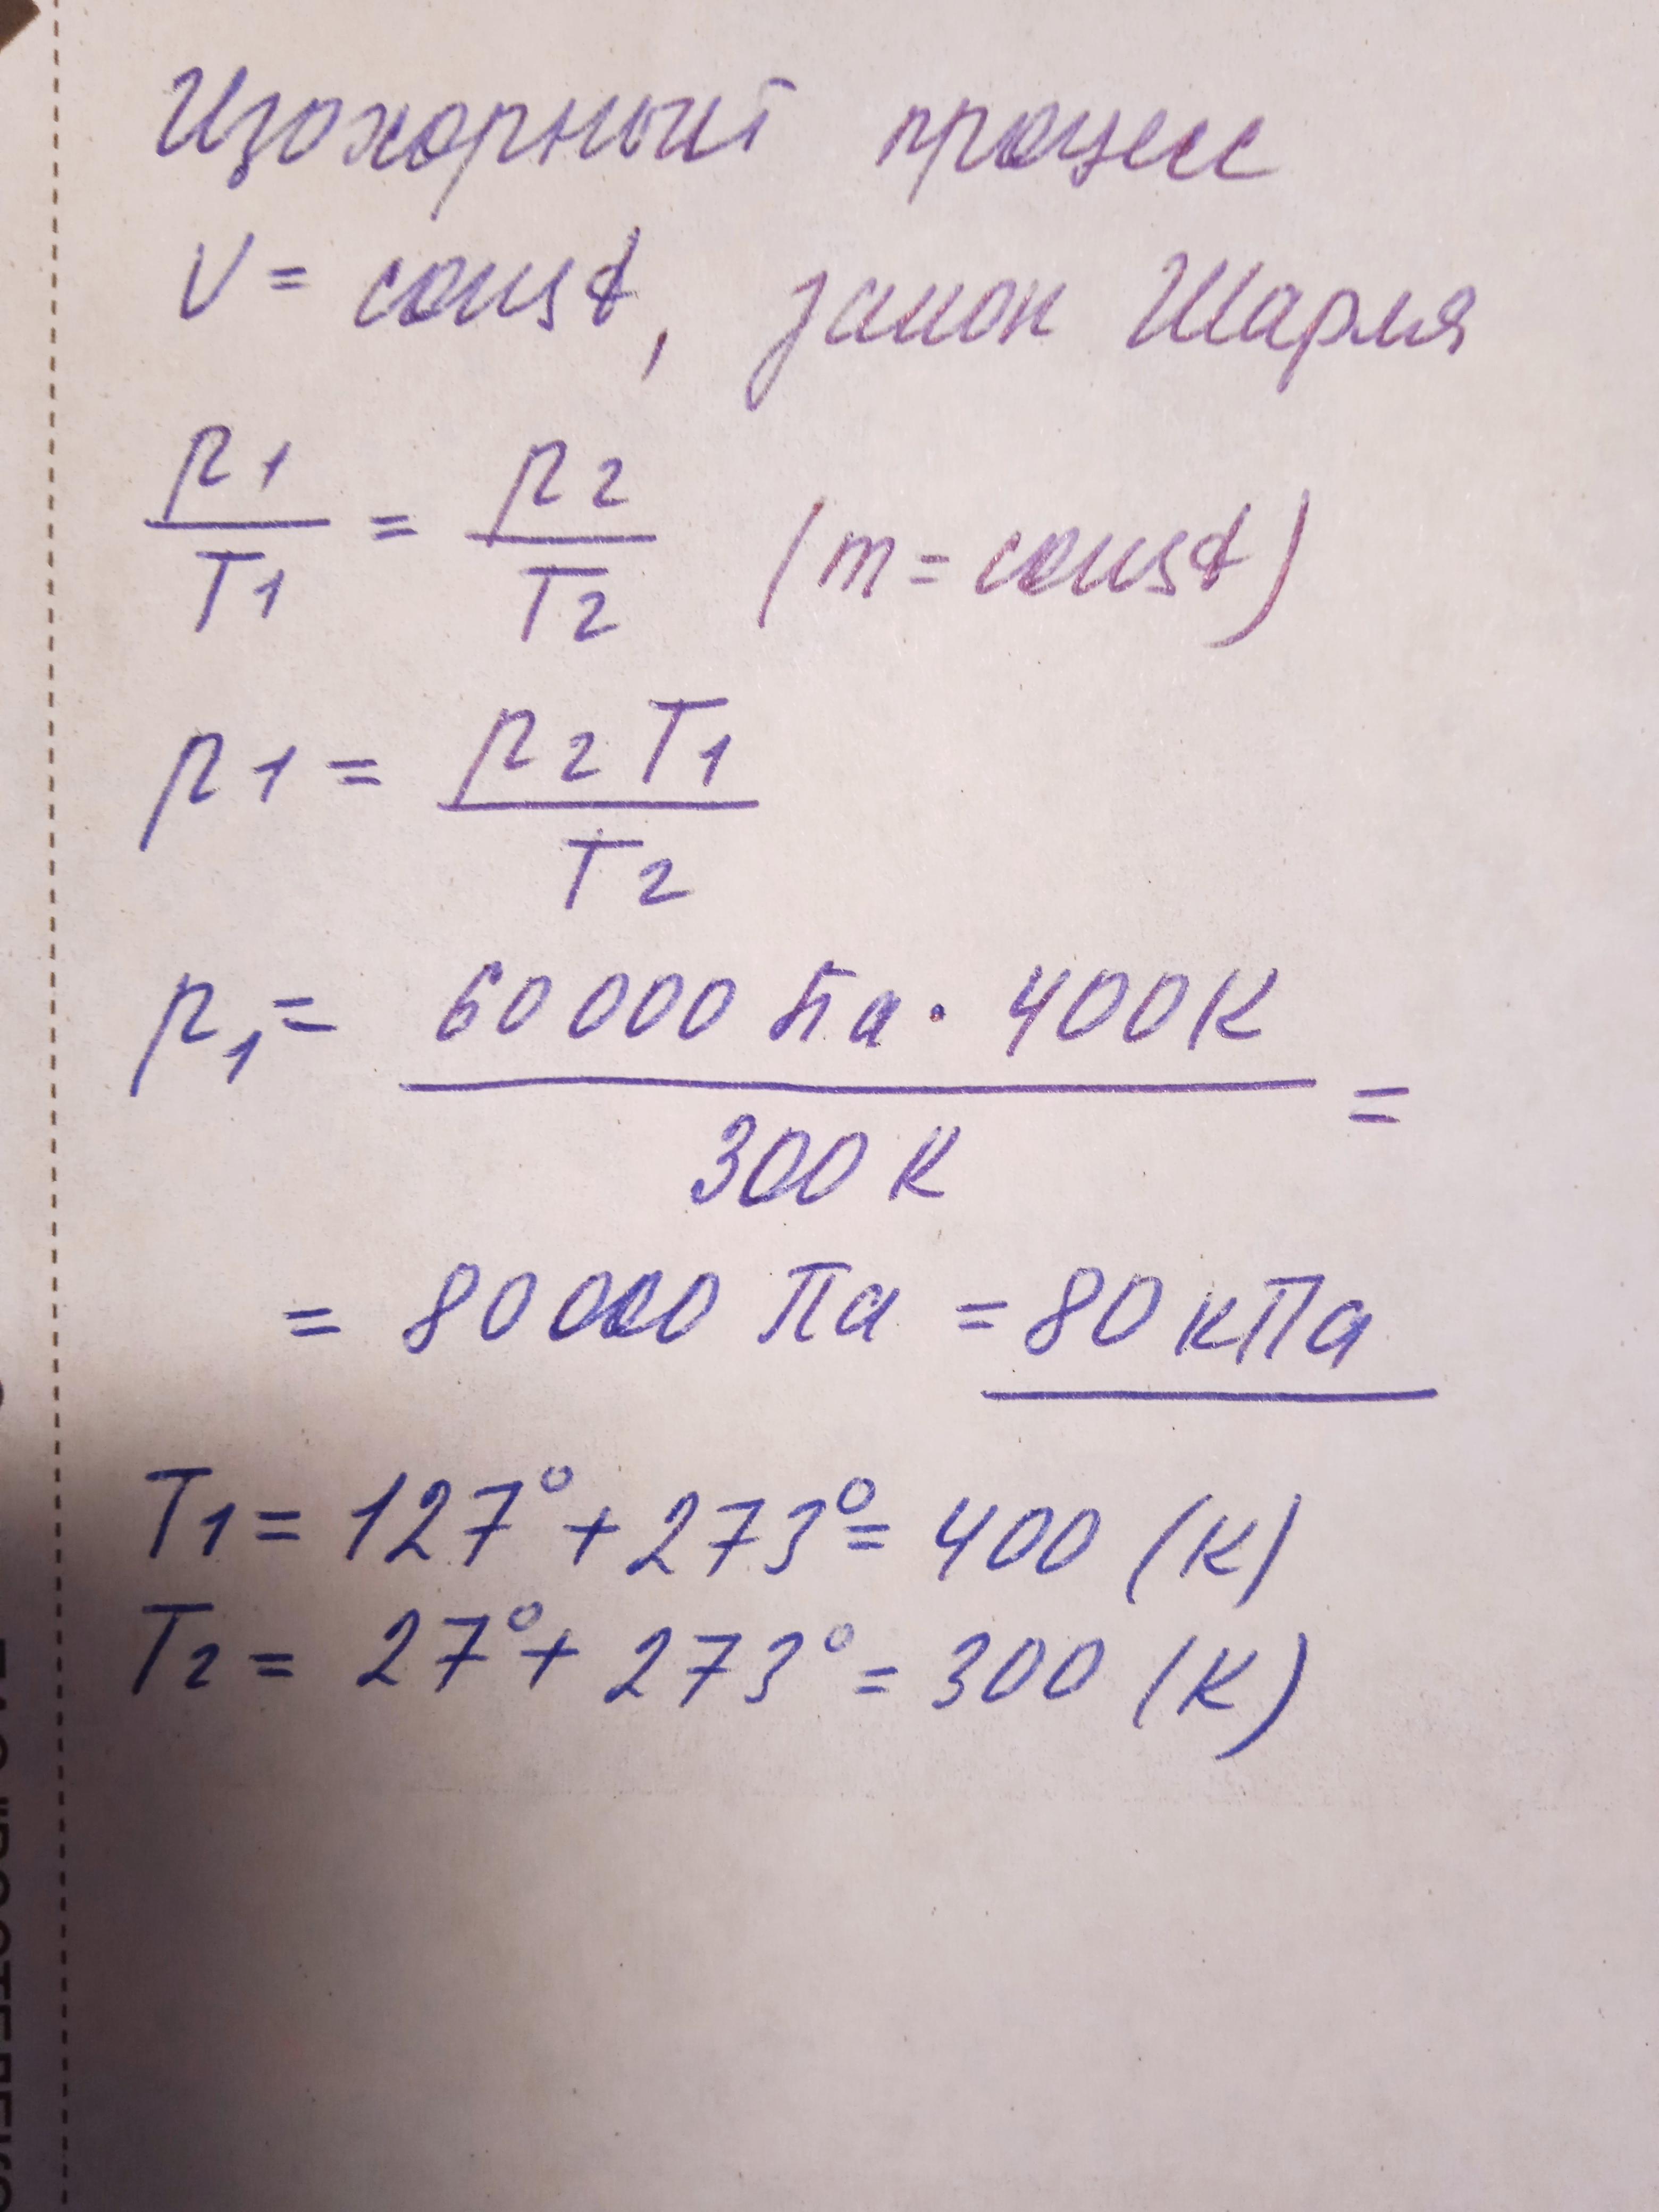 Изохорный процесс
V = const, закон Шарля
p1/T1 = p2/T2 (m = const)
p1 = p2 T1/T2
p1 = 60 000 Па · 400 К/300 К =
= 80 000 Па = 80 кПа
T1 = 127° + 273° = 400 (К)
T2 = 27° + 273° = 300 (К)